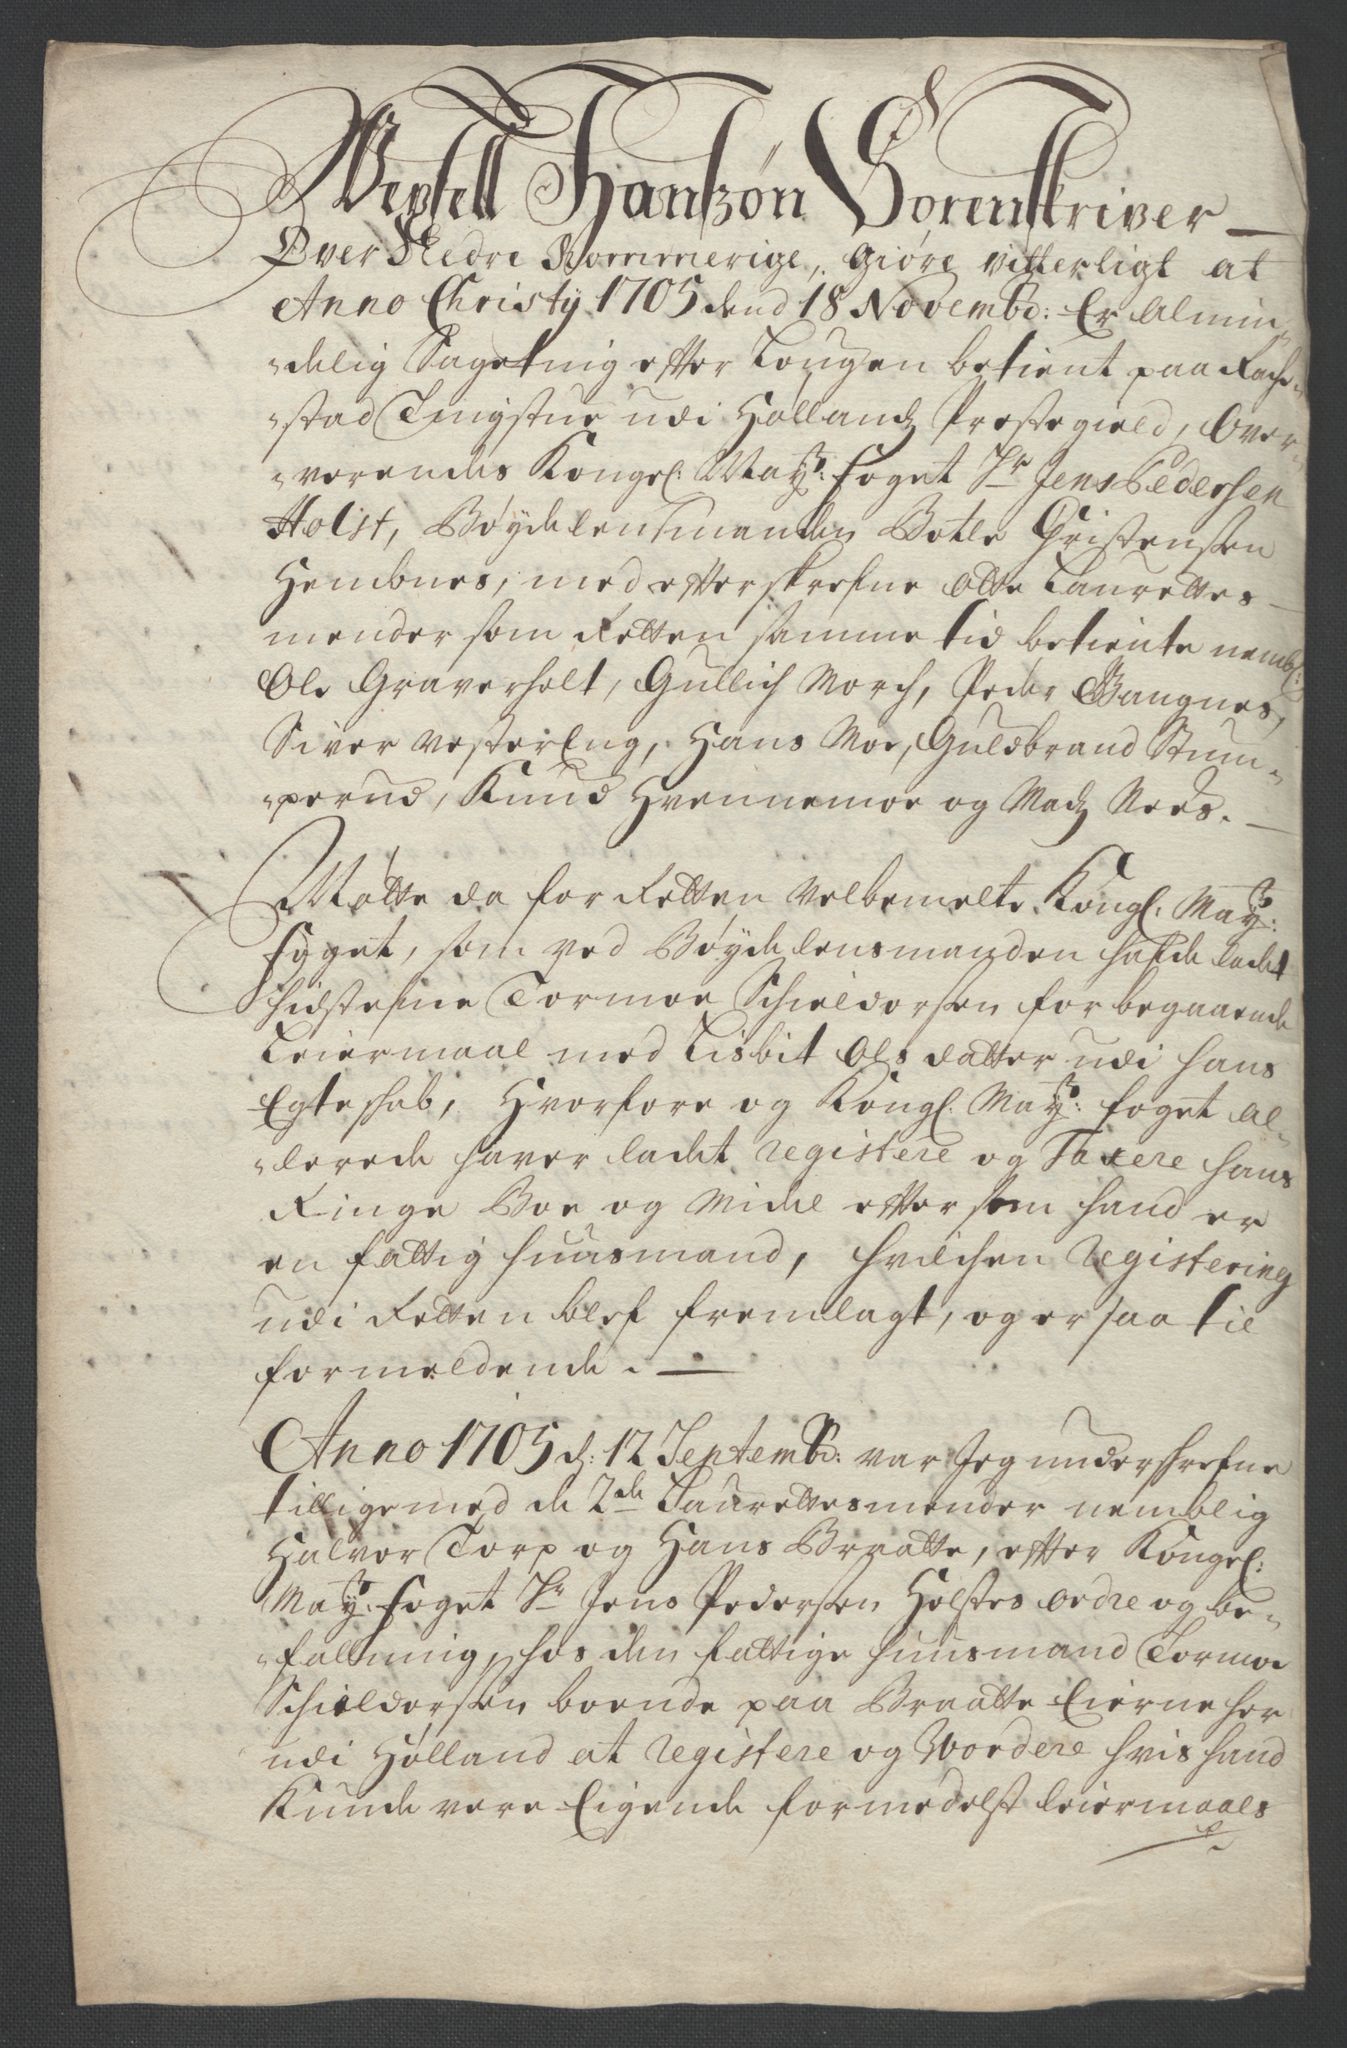 Wepsell Hanszøn Sorenskriver
Over Nedre Rommerige, giøre vitterligt at
Anno Christy 1705 dend 18 Novembr: Er Almin-
delig Sageting effter Lougen betient paa Rache-
stad Tingstue udi Hollandz Præstegield, Over-
verendes Kongel: Mayts: foget Sr Jens Pedersen
Holst, Bøydelensmanden Botle Christensen
Hembnes, med effterskrefne otte Laurettes-
mender som Retten samme tid betiente nembl:
Ole Graverholt, Gullich Morch, Peder Bangnes,
Siver Vestereng, Hans Moe, Guldbrand Stum-
perud, Knud Hvennemoe og Madz Nees.
Møtte da for Retten velbemelte Kongl. Mayts:
foget, som ved Bøydelensmanden hafde ladet
hidstefne Tormoe Schieldorsen for begaaende
Leiermaal med Lisbit Olsdatter udi hans
Egteskab, Hvorfore og Kongl. Mayts: foget al-
lerede haver ladet registere og Taxere hans
Ringe Boe og Midel effter som hand er
en fattig huusmand, hvilchen registering
udi Retten blef fremlagt, og er saa til
formeldende.
Anno 1705 d: 12 Septembr: var Jeg underskrefne
tillige med de 2de Laurettesmender nemblig
Halvor Torp og Hans Braatte, effter Kongel:
Mayts. foget Sr Jens Pedersen Holstes ordre og be-
falning, hos den fattige huusmand Tormoe
Schieldorsen boende paa Braatte Eierne her
udi Høland at registere og Vordere hvis hand
Kunde vere Eigende formedelst leiermaals